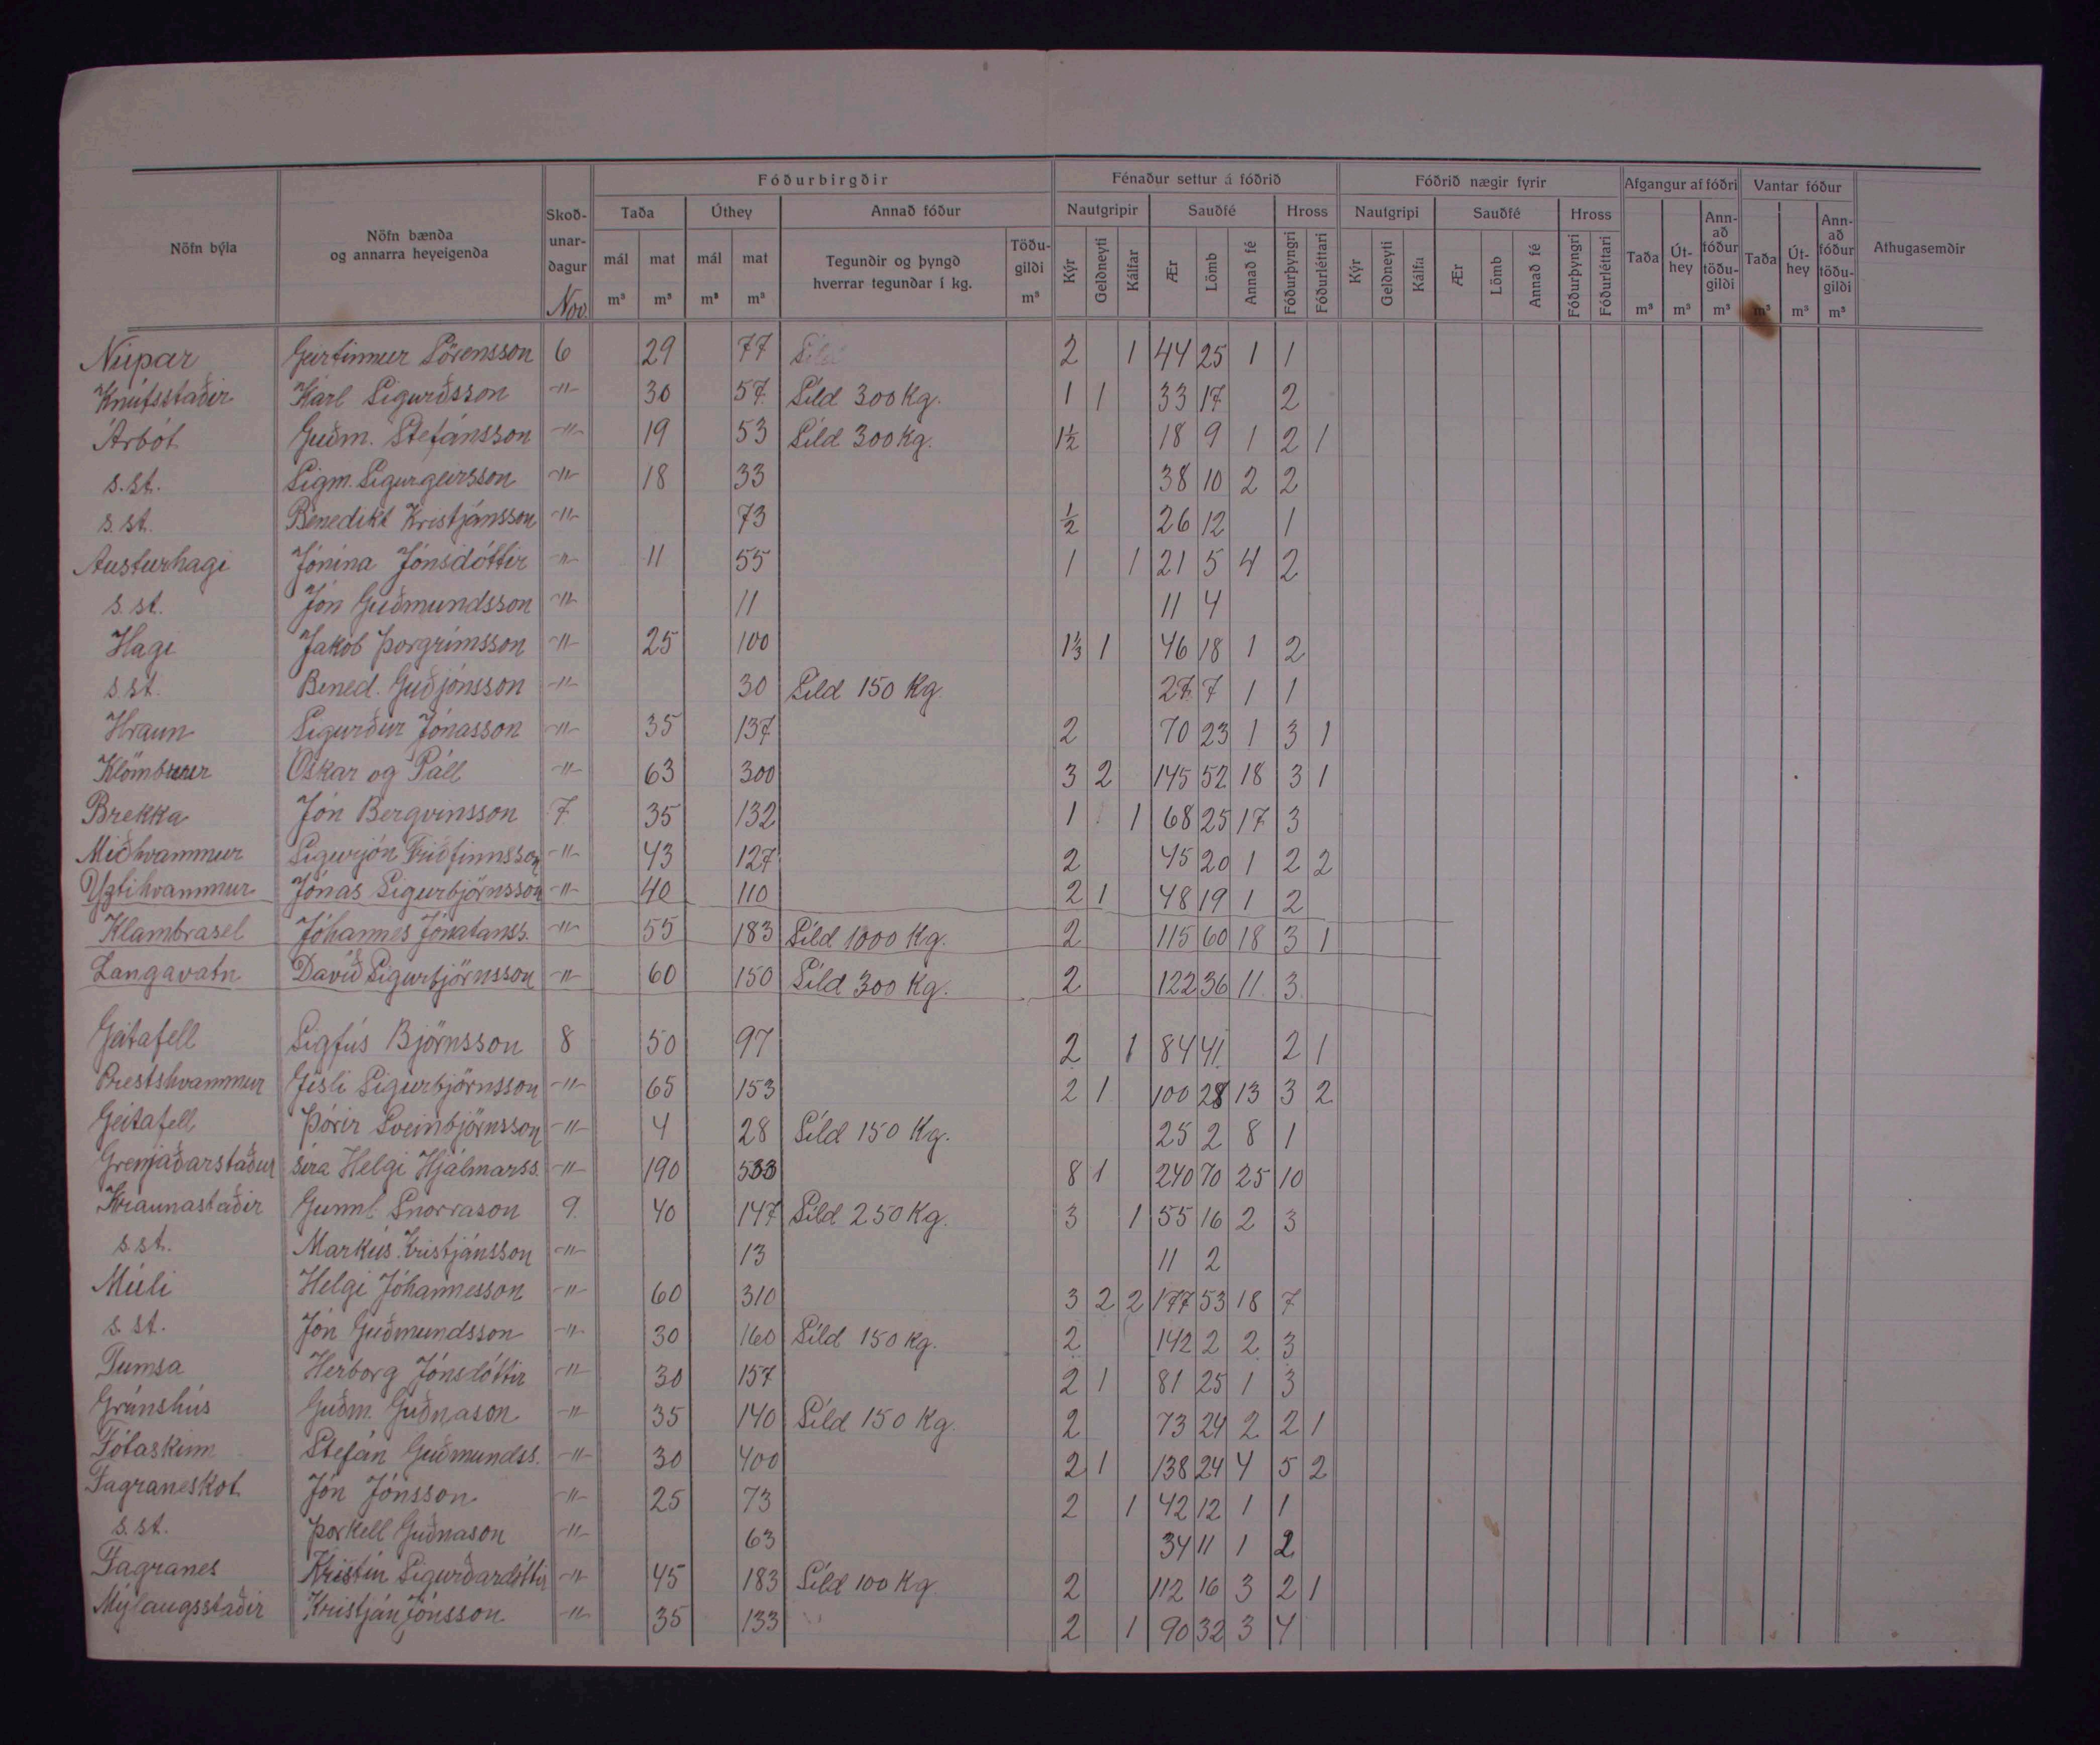 Fóðurbirgðir Fénaður settur á fóðrið Fóðrið nægir fyrir Afgangur af fóðri Vantar fóður
Nöfn býla Nöfn bænda og annarra heyeigenda Skoð-unar-dagur Nov. Taða Úthey Annað fóður Nautgripir Sauðfé Hross Nautgripi Sauðfé Hross Taða Út-hey Ann-að fóður töðu-gildi Taða Út-hey Ann-að fóður töðu-gildi Athugasemdir
mál mat mál mat Tegundir og þyngd hverrar tegundar í kg. Töðu-gildi Kýr Geldneyti Kálfar Ær Lömb Annað fé Fóðurþyngri Fóðurléttari Kýr Geldneyti Kálfa Ær Lömb Annað fé Fóðurþyngri Fóðurléttari
m³ m³ m³ m³ m³ m³ m³ m³ m³ m³ m³
Núpar Gurfinnur Sörensson 6 29 77 Síld 2 1 44 25 1 1
Knútsstaðir Karl Sigurðsson -"- 30 57 Síld 300 Kg. 1 1 33 17 2
Árbót Guðm. Stefánsson -"- 19 53 Síld 300 Kg. 1½ 18 9 1 2 1
s.st. Sigm. Sigurgeirsson -"- 18 33 38 10 2 2
s.st. Benedikt Kristjánsson -"- 73 ½ 26 12 1
Austurhagi Jónína Jónsdóttir -"- 11 55 1 1 21 5 4 2
s.st. Jón Guðmundsson -"- 11 11 4
Hagi Jakob Þorgrímsson -"- 25 100 1⅓ 1 46 18 1 2
s.st. Bened. Guðjónsson -"- 30 Síld 150 Kg. 27 7 1 1
Hraun Sigurður Jónasson -"- 35 137 2 70 23 1 3 1
Klömbrur Óskar og Páll -"- 63 300 3 2 145 52 18 3 1
Brekka Jón Bergvinsson 7 35 132 1 1 68 25 17 3
Miðhvammur Sigurjón Friðfinnsson -"- 43 127 2 45 20 1 2 2
Yztihvammur Jónas Sigurbjörnsson -"- 40 110 2 1 48 19 1 2
Klambrasel Jóhannes Jónatanss. -"- 55 183 Síld 1000 Kg. 2 115 60 18 3 1
Langavatn Davíð Sigurbjörnsson -"- 60 150 Síld 300 Kg. 2 122 36 11 3
Geitafell Sigfús Björnsson 8 50 97 2 1 84 41 2 1
Prestshvammur Gísli Sigurbjörnsson -"- 65 153 2 1 100 28 13 3 2
Geitafell Þórir Sveinbjörnsson -"- 4 28 Síld 150 Kg. 25 2 8 1
Grenjaðarstaður síra Helgi Hjálmarss. -"- 190 533 8 1 240 70 25 10
Hraunastaðir Gunnl. Snorrason 9. 40 147 Síld 250 Kg. 3 1 55 16 2 3
s.st. Markús Kristjánsson -"- 13 11 2
Múli Helgi Jóhannesson -"- 60 310 3 2 2 177 53 18 7
s.st. Jón Guðmundsson -"- 30 160 Síld 150 kg. 2 142 2 2 3
Tumsa Herborg Jónsdóttir -"- 30 157 2 1 81 25 1 3
Grímshús Guðm. Guðnason -"- 35 140 Síld 150 Kg. 2 73 24 2 2 1
Fótaskinn Stefán Guðmundss. -"- 30 400 2 1 138 24 4 5 2
Fagraneskot Jón Jónsson -"- 25 73 2 1 42 12 1 1
s.st. Þorkell Guðnason -"- 63 34 11 1 2
Fagranes Kristín Sigurðardóttir -"- 45 183 Síld 100 Kg. 2 112 16 3 2 1
Mýlaugsstaðir Kristján Jónsson -"- 35 133 2 1 90 32 3 4